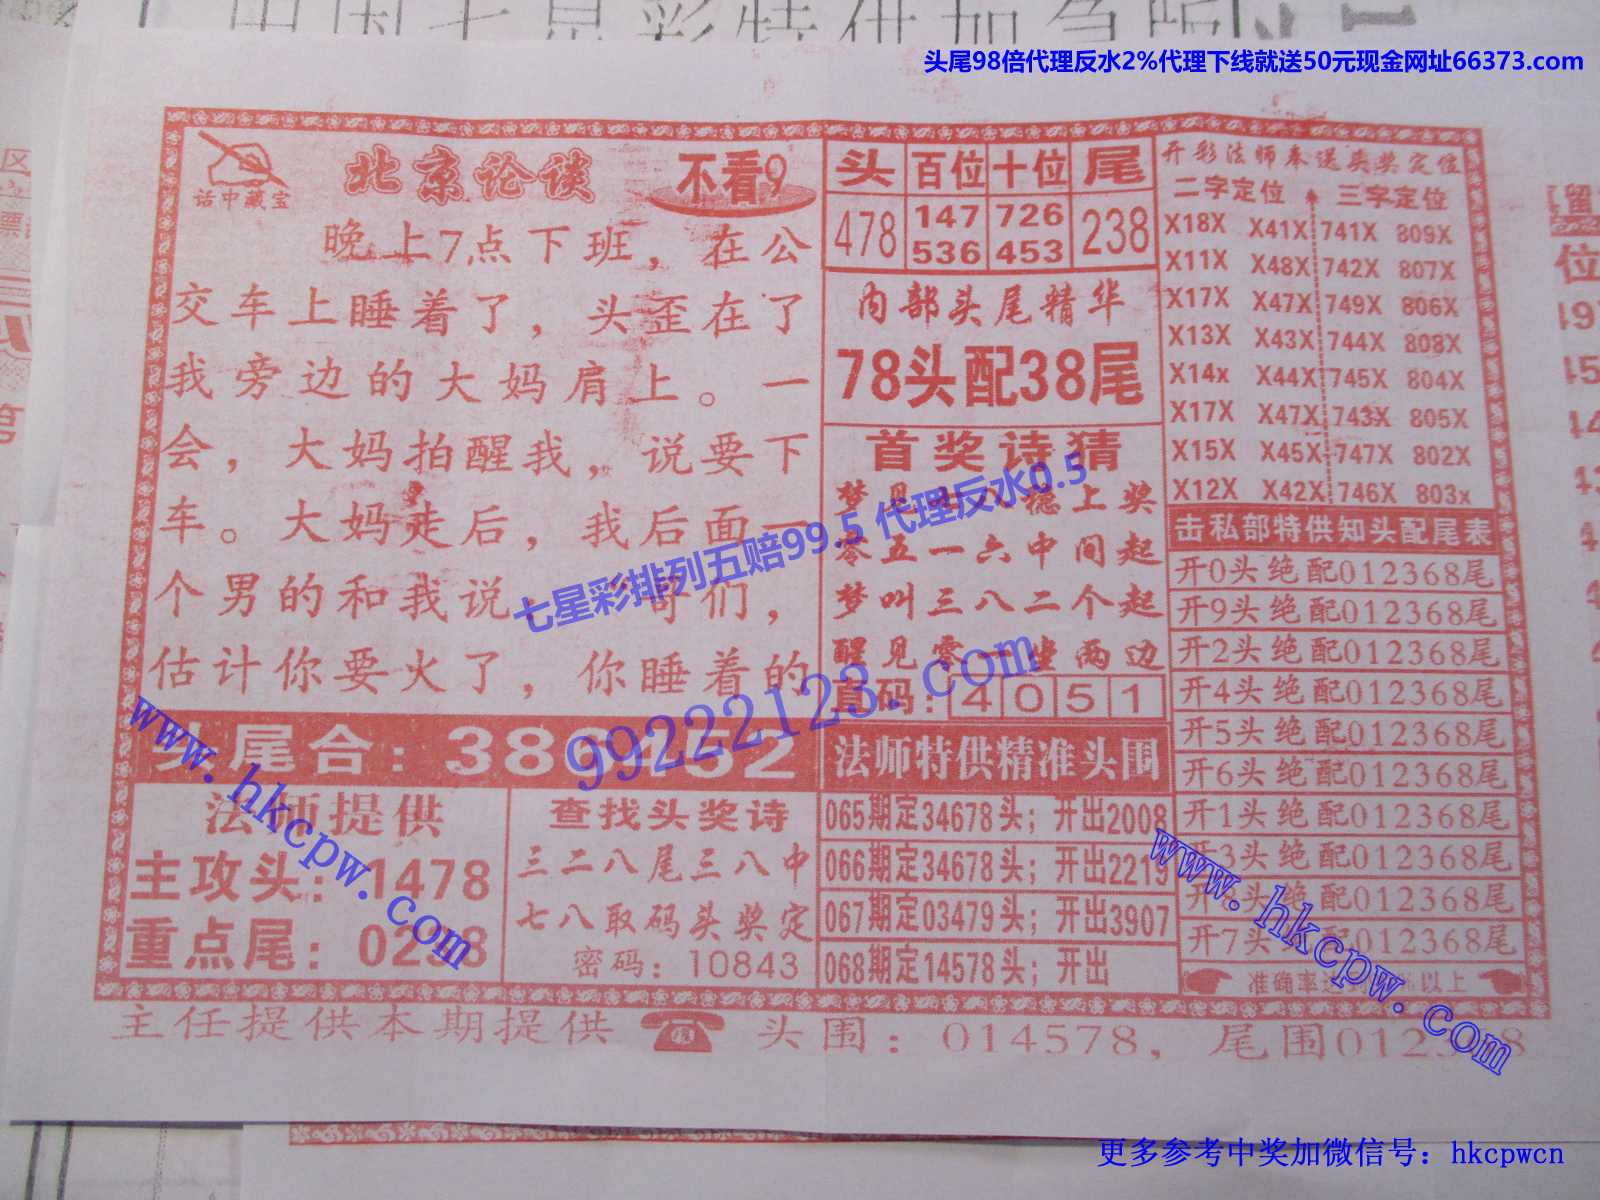 头尾98倍代理反水2%代理下线就送50元现金网址66373.com
话中藏宝
北京论谈
不看9
晚上7点下班，在公
交车上睡着了，头歪在了
我旁边的大妈肩上。一
会，大妈拍醒我，说要下
车。大妈走后，我后面一
个男的和我说，哥们，
估计你要火了，你睡着的
头尾合：386152
头 百位 十位 尾
478 147 726 238
536 453
内部头尾精华
78头配38尾
首奖诗猜
零五一六中间起
梦叫三八二个起
醒见零一坐两边
真码：4051
法师特供精准头围
065期定34678头；开出2008
066期定34678头；开出2219
067期定03479头；开出3907
068期定14578头；开出
开彩法师奉送头奖定位
二字定位 三字定位
X18X X41X 741X 809X
X11X X48X 742X 807X
X17X X47X 749X 806X
X13X X43X 744X 808X
X14x X44X 745X 804X
X17X X47X 743X 805X
X15X X45X 747X 802X
X12X X42X 746X 803x
击私部特供知头配尾表
开0头绝配012368尾
开9头绝配012368尾
开2头绝配012368尾
开4头绝配012368尾
开5头绝配012368尾
开6头绝配012368尾
开1头绝配012368尾
开3头绝配012368尾
开8头绝配012368尾
开7头绝配012368尾
准确率达 %以上
法师提供
主攻头：1478
重点尾：0238
查找头奖诗
三二八尾三八中
七八取码头奖定
密码：10843
主任提供本期提供 头围：014578，尾围012368
七星彩排列五赔99.5 代理反水0.5
99222123.com
www.hkcpw.com
www.hkcpw.com
更多参考中奖加微信号：hkcpwcn